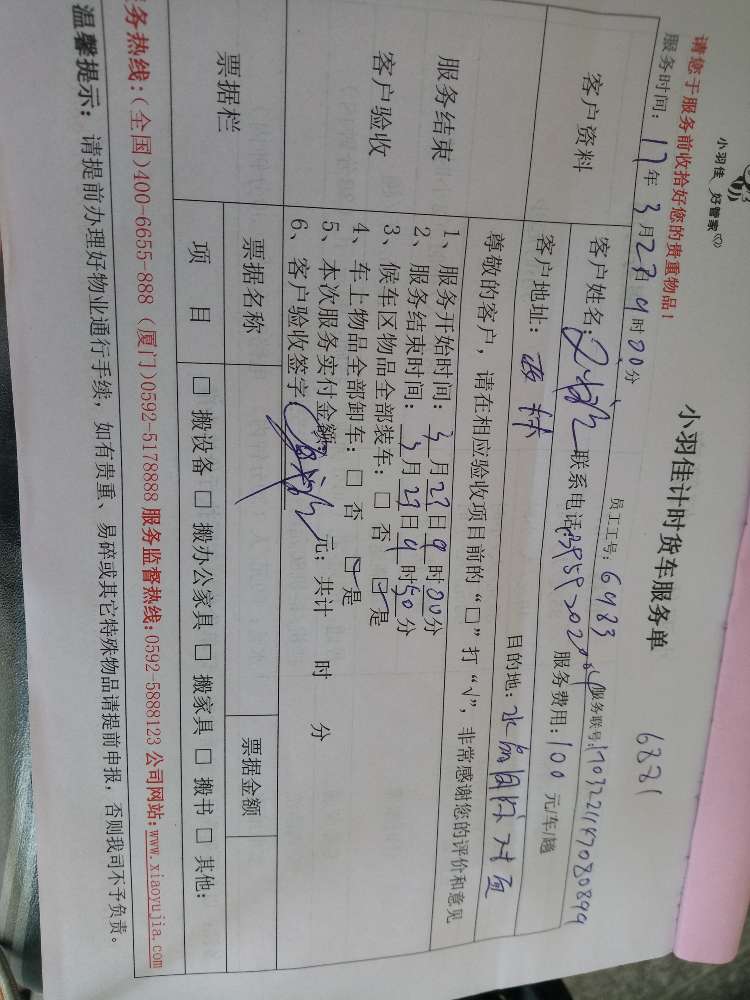 小羽佳 好管家
小羽佳计时货车服务单
6821
请您于服务前收拾好您的贵重物品！
服务时间：17年3月29日9时00分 员工工号：6483 服务联号：
客户资料
客户姓名： 联系电话： 服务费用：100元/车/趟
客户地址： 目的地：
尊敬的客户，请在相应验收项目前的“□”打“√”，非常感谢您的评价和意见
服务结束
客户验收
1、服务开始时间：3月29日9时00分
2、服务结束时间：3月29日9时50分
3、候车区物品全部装车：□ 否 ☑ 是
4、车上物品全部卸车：□ 否 ☑ 是
5、本次服务实付金额： 元；共计 时 分
6、客户验收签字：
票据栏
票据名称 票据金额
项 目 □ 搬设备 □ 搬办公家具 □ 搬家具 □ 搬书 □ 其他：
务热线：(全国)400-6655-888 (厦门)0592-5178888 服务监督热线：0592-5888123 公司网站：www.xiaoyujia.com
温馨提示：请提前办理好物业通行手续，如有贵重、易碎或其它特殊物品请提前申报，否则我司不予负责。